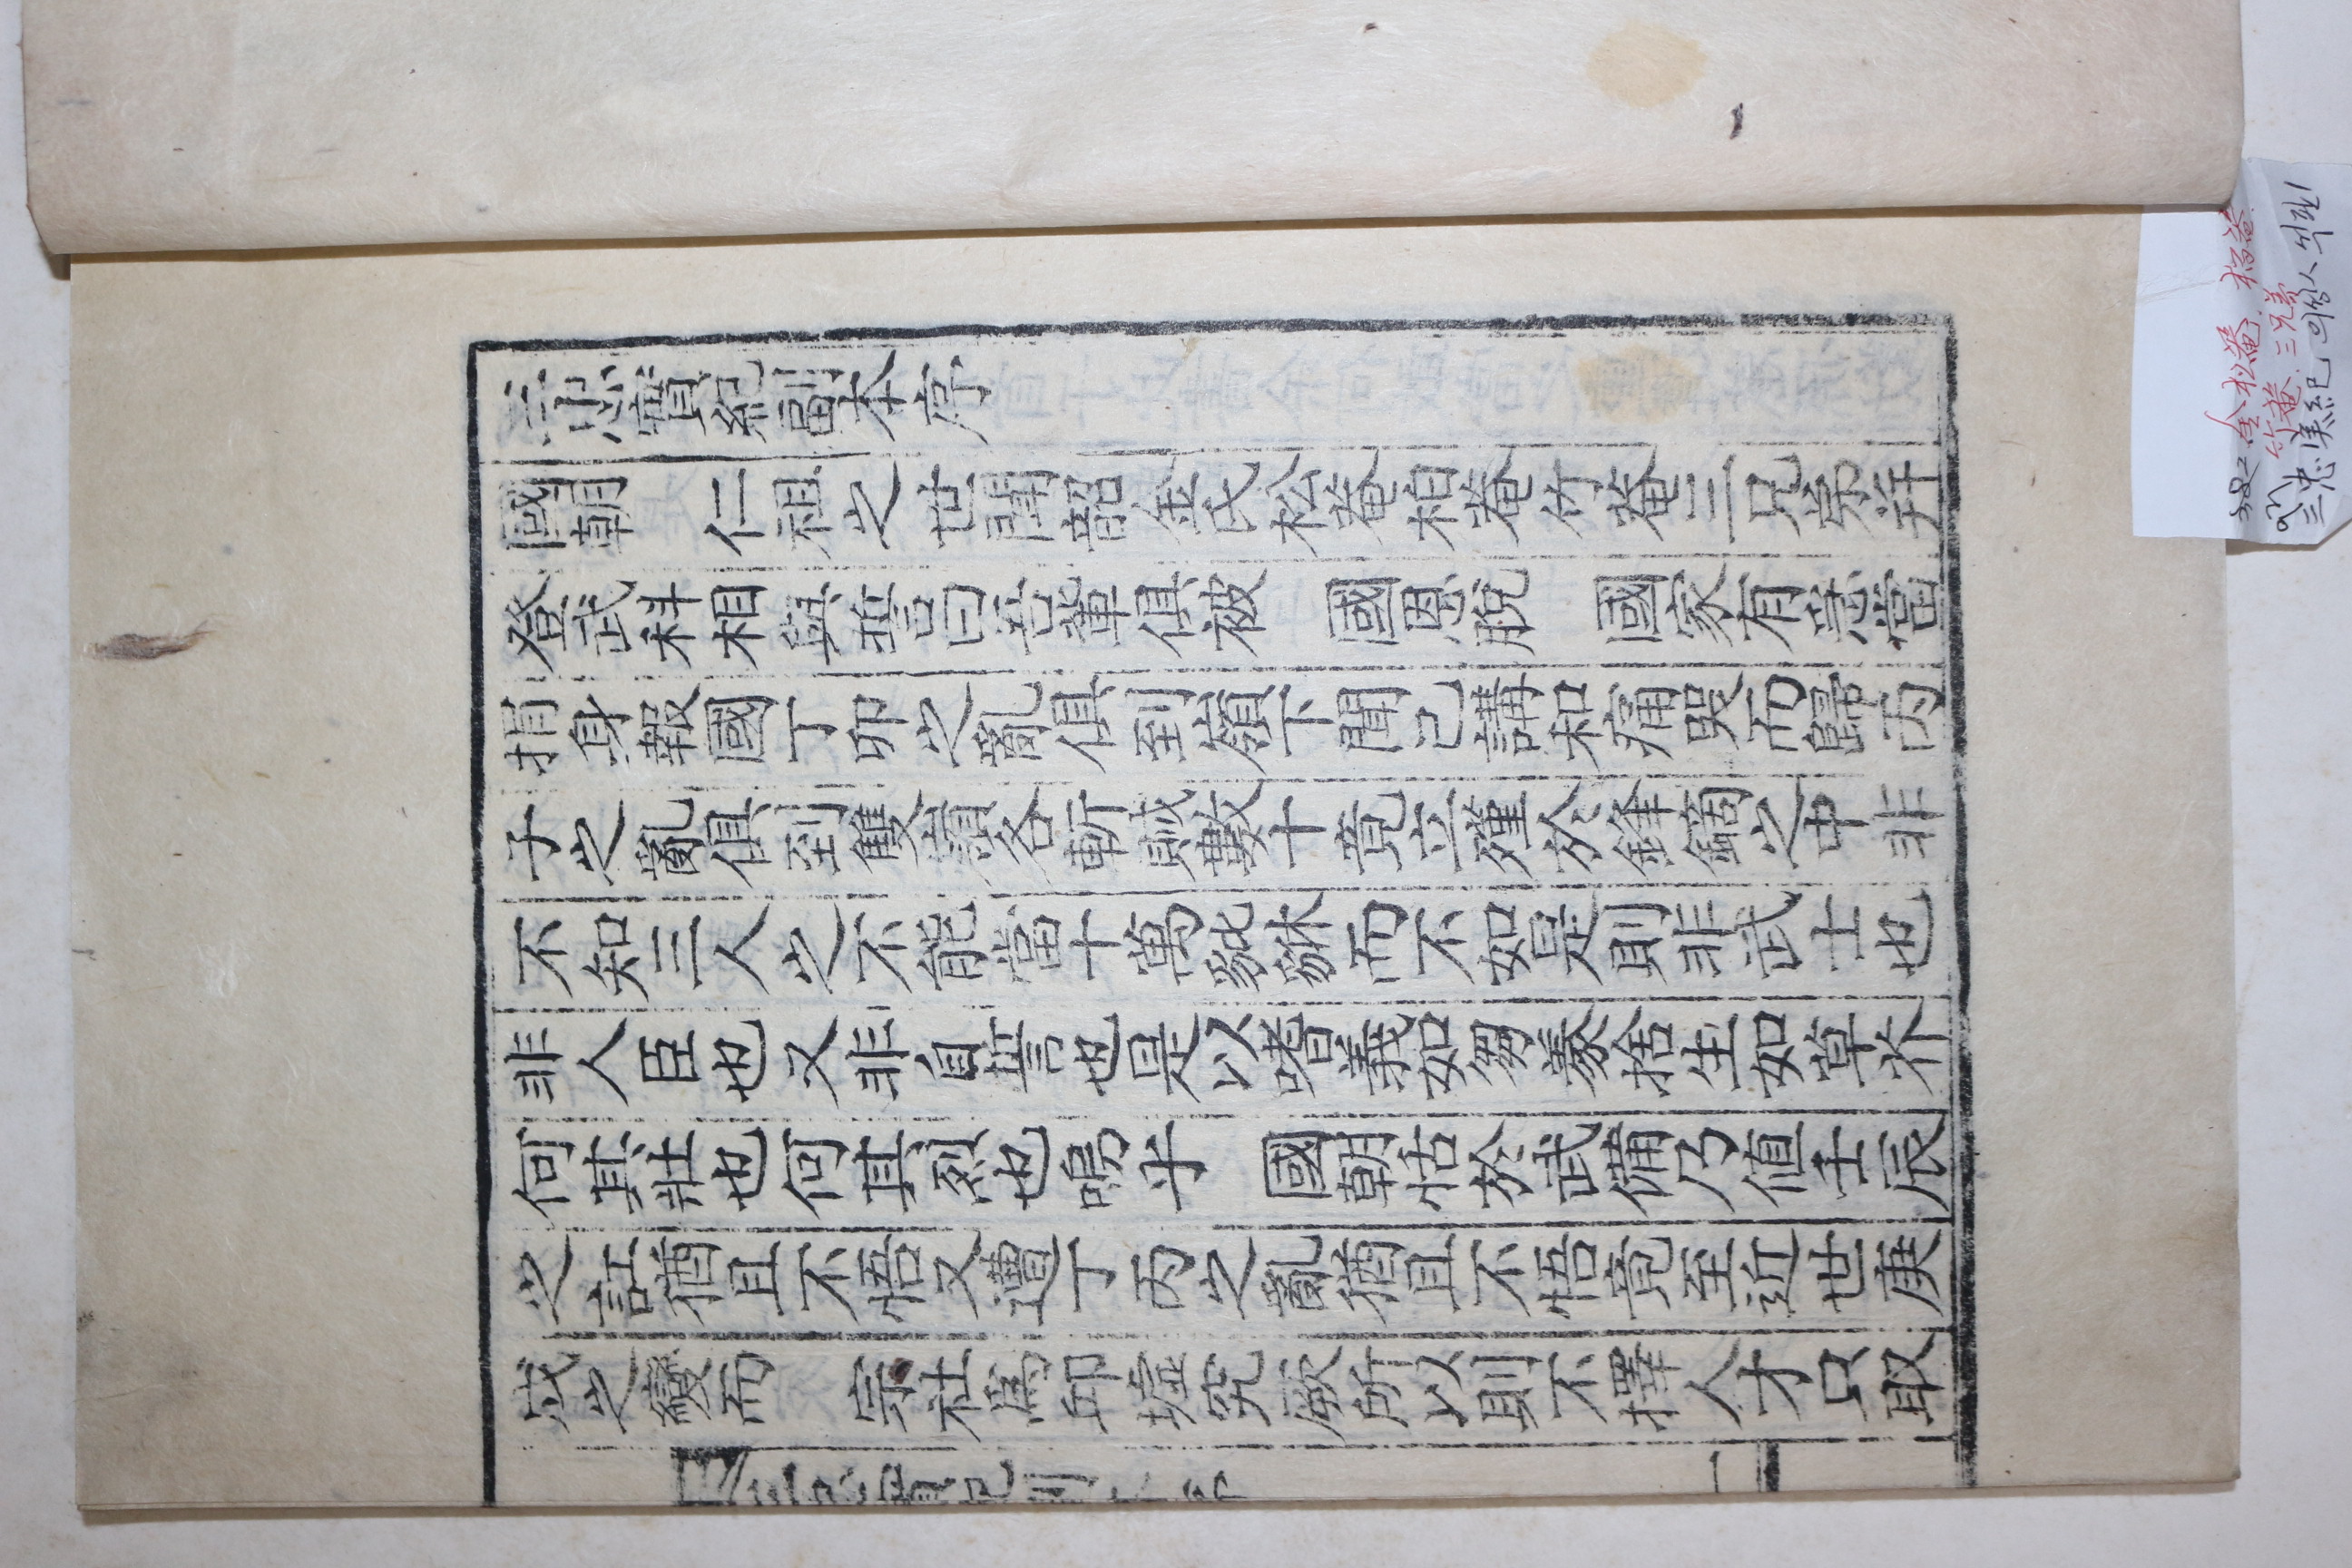 三忠實紀副本序
國朝 仁祖之世聞韶金氏松菴柏菴竹菴三兄弟幷
登武科相與誓曰吾輩俱被 國恩脫 國家有急當
捐身報國丁卯之亂俱到嶺下聞已講和痛哭而歸丙
子之亂俱到雙嶺各斬賊數十竟立殣於鋒鏑之中非
不知三人之不能當十萬豼貅而不如是則非武士也
非人臣也又非自誓也是以嗜義如芻豢捨生如草芥
何其壯也何其烈也嗚乎 國朝恬於武備乃値壬辰
之訌猶且不悟又遭丁丙之亂猶且不悟竟至近世庚
戌之變而 宗社爲邱墟究厥所以則不擇人才只取
三忠實紀副本序
一
金松菴. 柏菴.
竹菴. 三兄弟
三忠実紀 의성人 석판1